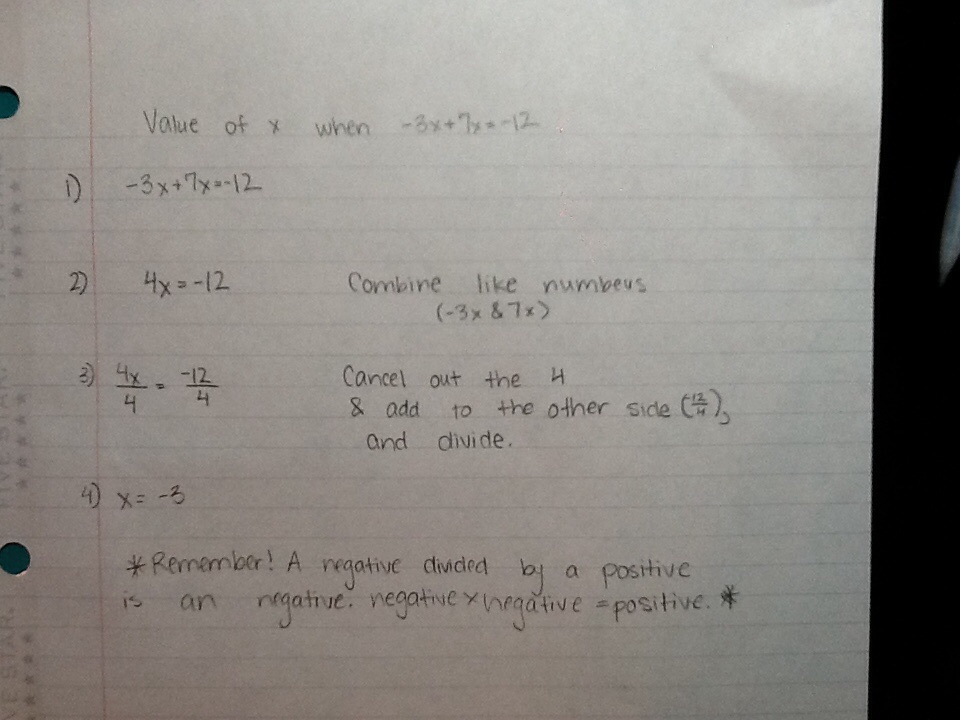 Value of x when -3x+7x=-12
1) -3x+7x=-12
2) 4x=-12 Combine like numbers
(-3x & 7x)
3) 4x/4 = -12/4 Cancel out the 4
& add to the other side (12/4),
and divide.
4) x= -3
*Remember! A negative divided by a positive
is an negative. negative x negative = positive. *